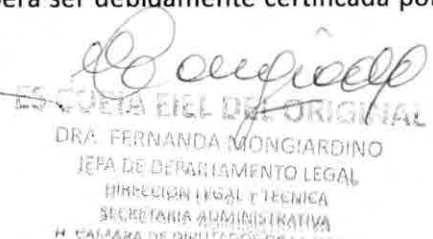 ser debidamente certificada por
ES COPIA FIEL DEL ORIGINAL
DRA. FERNANDA MONGIARDINO
JEFA DE DEPARTAMENTO LEGAL
DIRECCION LEGAL Y TECNICA
SECRETARIA ADMINISTRATIVA
H. CAMARA DE DIPUTADOS DE LA